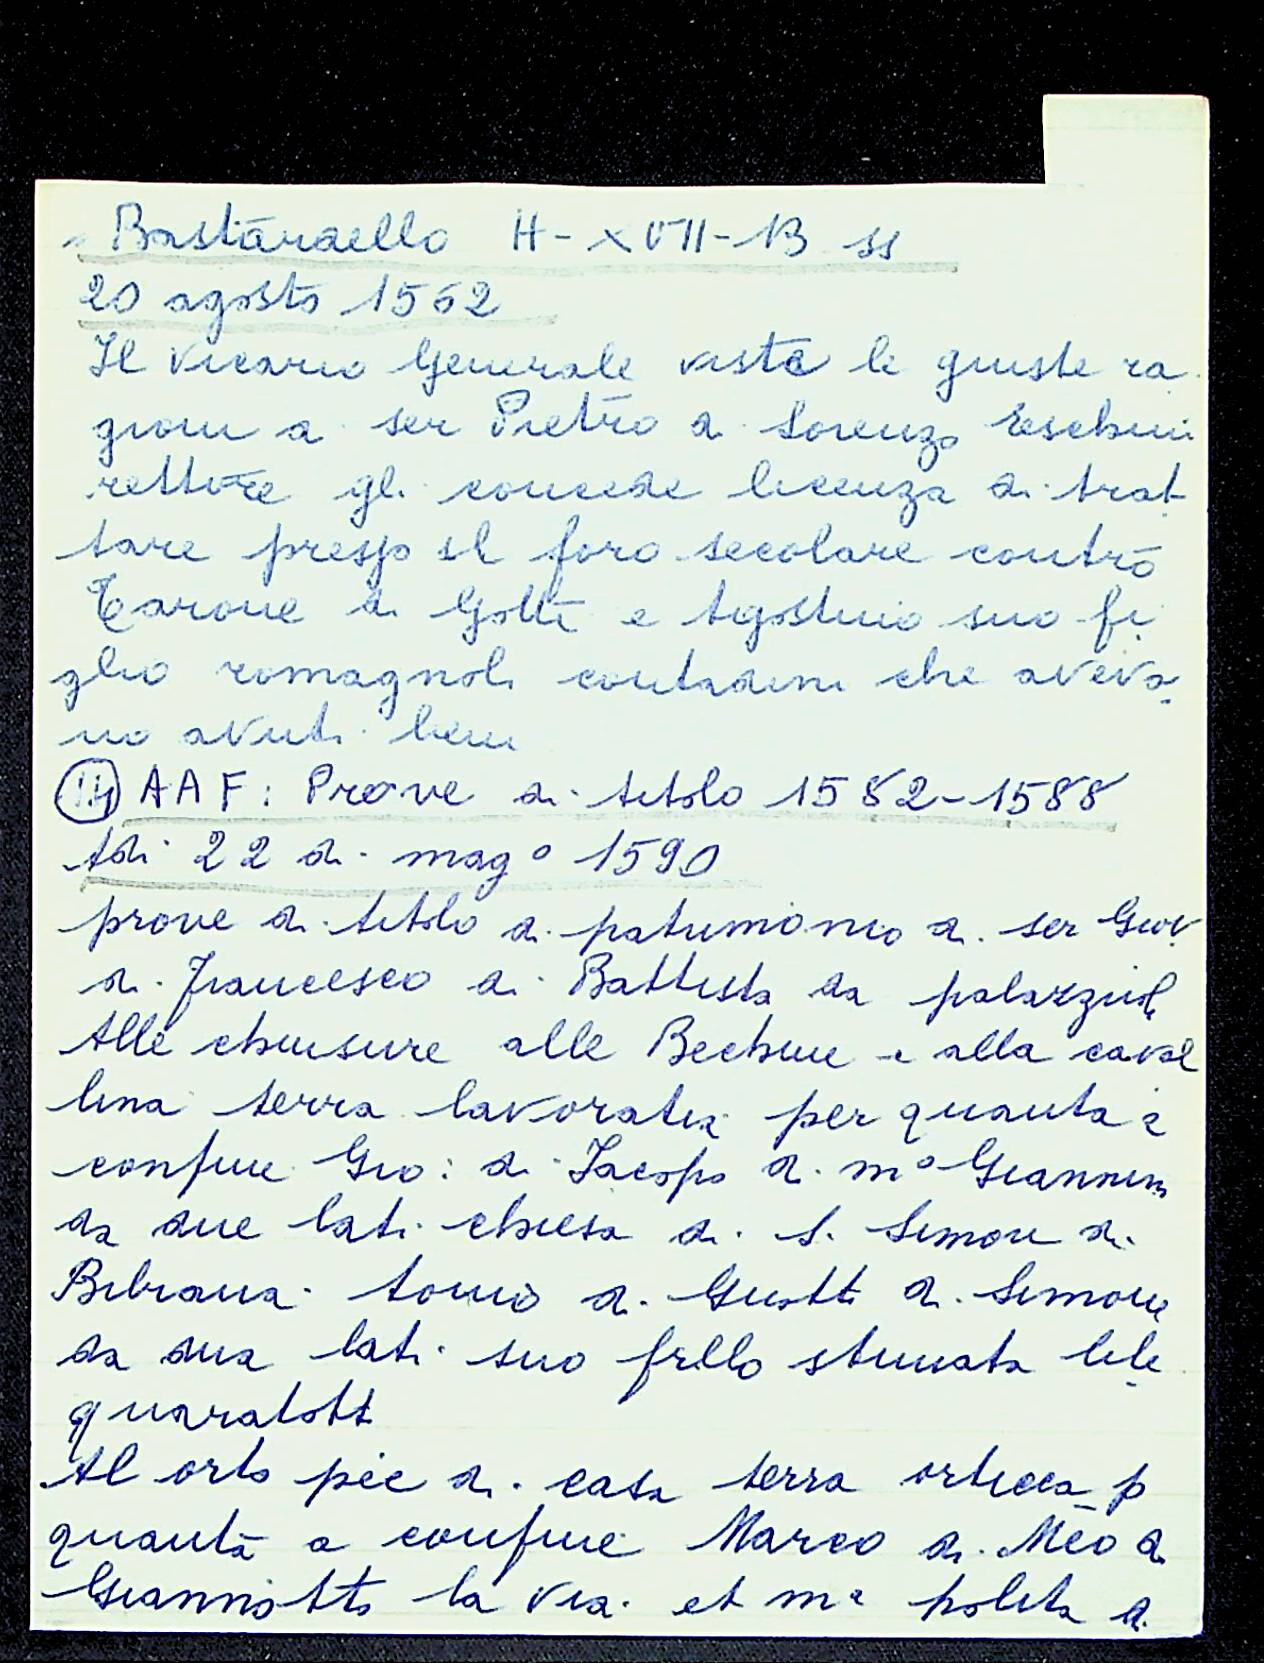 Bastardello H-XVII-13 ss
20 agosto 1562
Il Vicario Generale viste le giuste ra
gioni a ser Pietro di Lorenzo
rettore gli concede licenza di trat
tare presso il foro secolare contro
di Gotti e Agostino suo fi
glio romagnoli contadini che aveva
no avuti beni
14 AAF: Prove di titolo 1582-1588
Adi 22 di mag° 1590
prove di titolo di patrimonio di ser Giov
di Francesco di Battista da palazzuol
Alle chiusure alle Bechine e alla caval
lina terra lavoratia per quanta è
confine Gio: di Jacopo di m° Giannin
da due lati chiesa di S. Simone di
Bibiana tonio di Giusti di Simone
da dua lati suo frllo stimata
quaratott
Al orto piè di casa terra p
quantà a confine Marco di Meo di
Giannotto la via et mª polita di